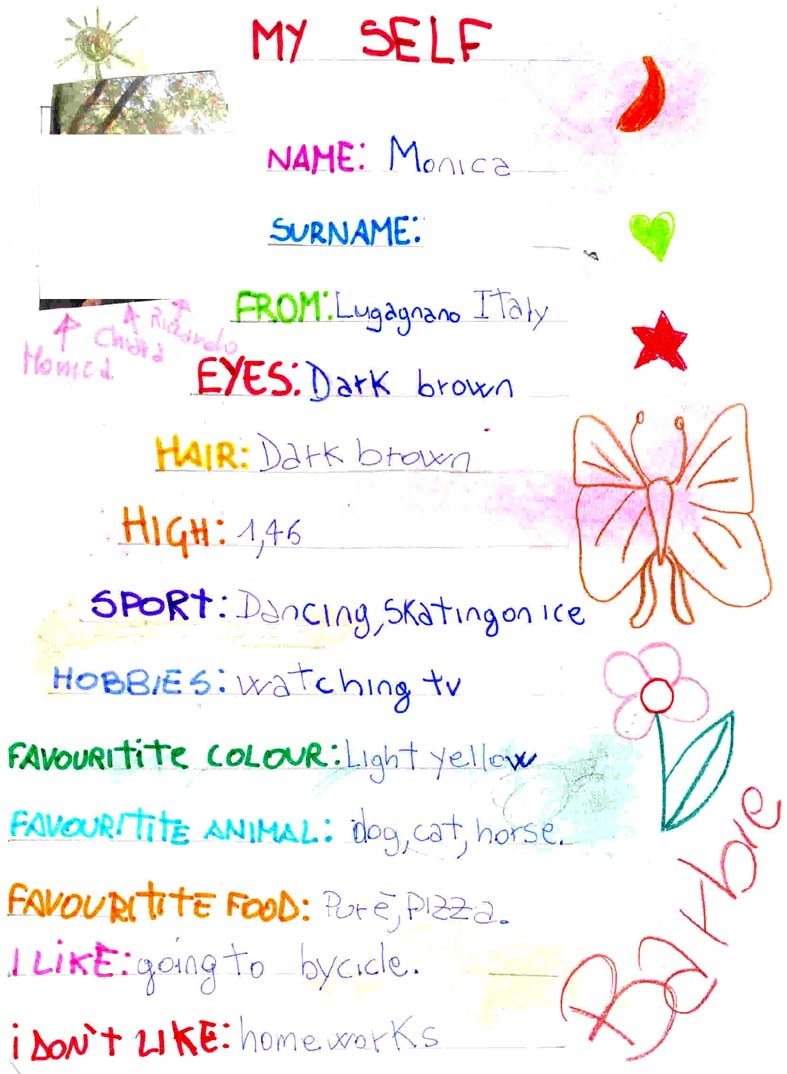 MY SELF
NAME: Monica
SURNAME:
FROM: Lugagnano Italy
Monica Chiara Riccardo
EYES: Dark brown
HAIR: Dark brown
HIGH: 1,46
SPORT: Dancing, skating on ice
HOBBIES: watching tv
FAVOURITITE COLOUR: Light yellow
FAVOURITITE ANIMAL: dog, cat, horse.
FAVOURITITE FOOD: Purè, PIZZA.
I LIKE: going to bycicle.
i DON'T LIKE: homeworks
Barbie